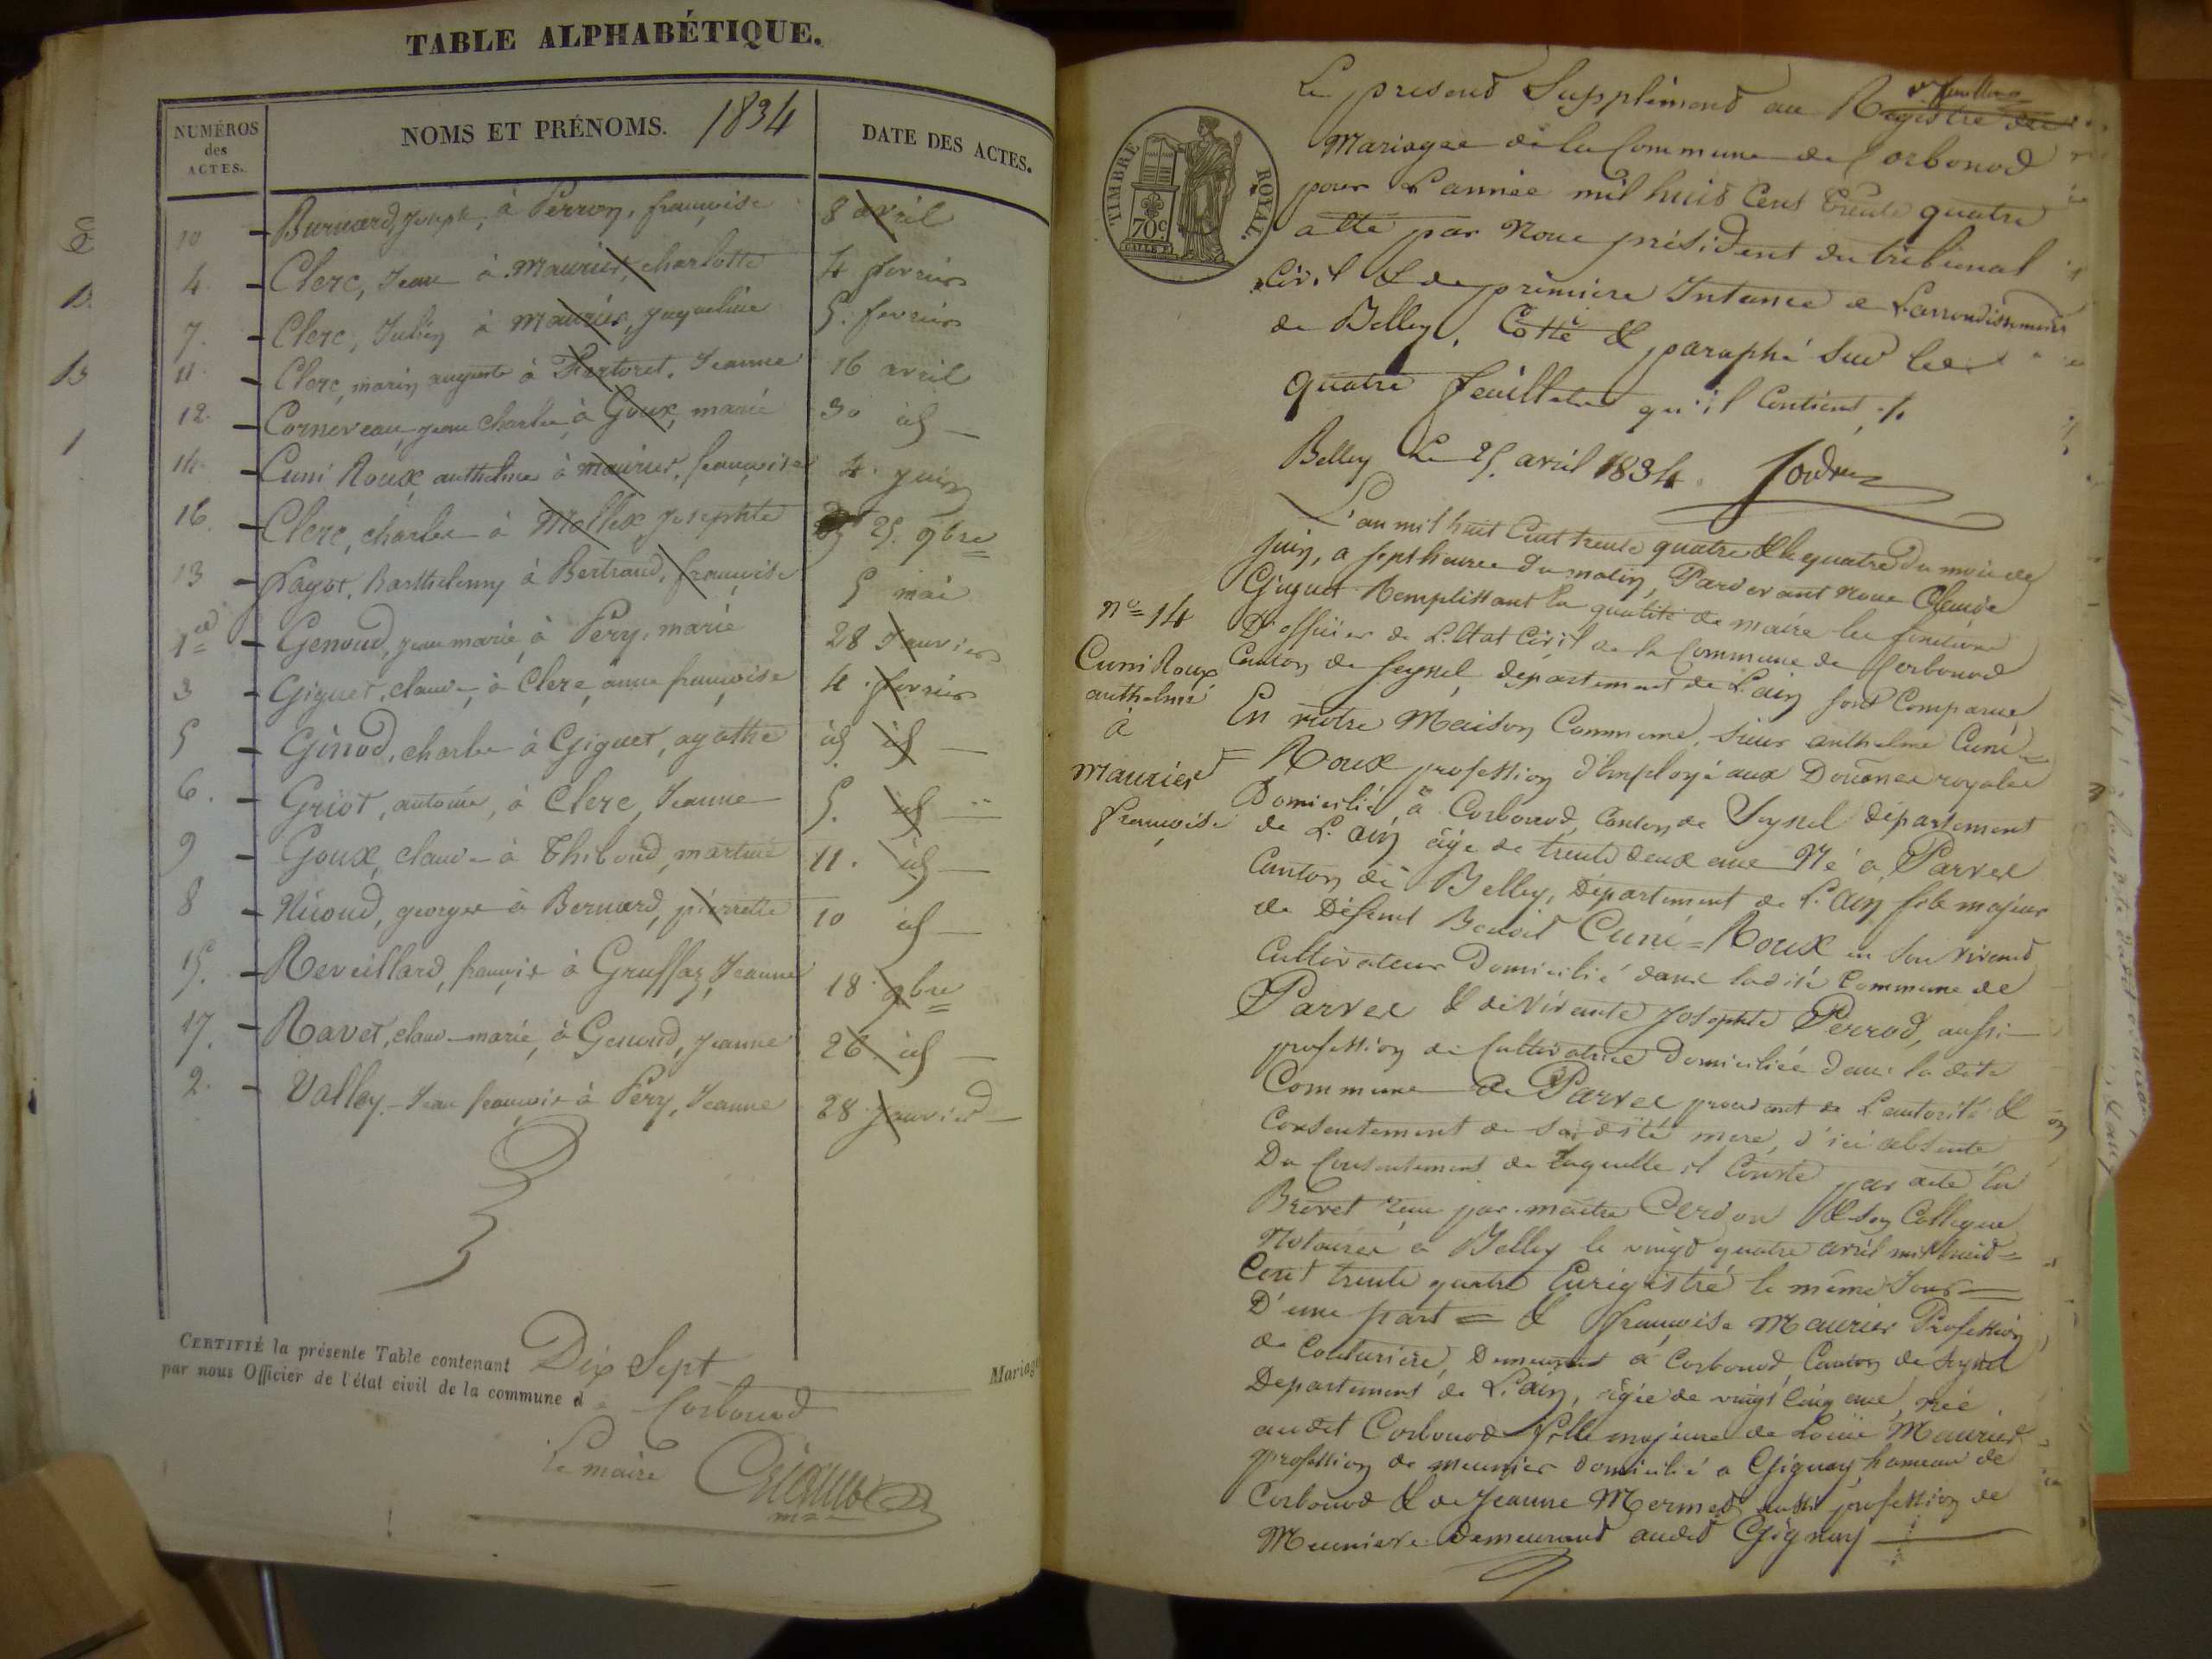 TABLE ALPHABÉTIQUE.
NUMÉROS
des
ACTES.
NOMS ET PRÉNOMS. 1834
DATE DES ACTES.
10 Burnard, Joseph, à Perron, françoise 8 avril
4. Clerc, Jean à Maurier, charlotte 4 fevrier
7. Clerc, Julien à Maurier, Jaqueline 5. fevrier
11. Clerc, marin auguste à Fartoret, Jeanne 16 avril
12. Corneveau, jean charles à Goux, marie 30 id
14. Cuni Roux anthelme à maurier, françoise 4. juin
16. Clerc, charles à Mollex, Josephte 25. 9bre
13 Fayot, Barthelemy à Bertrand, françoise 5 mai
1er Genoud, jean marie, à Pery, marie 28 Janvier
3 Giguet, claude, à Clerc, anne françoise 4. fevrier
5 Ginod, charles à Giguet, agathe id id
6. Griot, antoine, à Clerc, Jeanne 5. id
9 Goux, claude à Thiboud, martine 11. id
8 Nicoud, georges à Bernard, pierrette 10 id
15. Reveillard, françois à Gruffaz, Jeanne 18. 9bre
17. Ravet, claude marie, à Genoud, Jeanne 26. id
2. Valley, Jean françois à Pery, Jeanne 28 janvier
CERTIFIÉ la présente Table contenant Dix Sept Mariage
par nous Officier de l'état civil de la commune de Corbonod
Le maire
TIMBRE ROYAL.
70c.
Le present Supplément au Registre des
Mariages de la Commune de Corbonod
pour L'année mil huit Cent Trente quatre
a été par Nous président du tribunal
Civil & de première Intance de L'arrondissement
de Belley, Cotté & paraphé sur les
quatre feuillets qu'il Contient ./.
Belley Le 25. avril 1834.
L'an mil huit Cent trente quatre & le quatre du mois de
juin, a sept heures du matin, Pardevant nous Claude
Giguet Remplissant la qualité de maire les fonctions
D'officier de L'Etat Civil de la Commune de Corbonod
Canton de Seyssel, département de L'ain sont Comparus
En notre Maison Commune, sieur anthelme Cuni=
n° 14
Cuni Roux
anthelme
à
Maurier
françoise
=Roux profession d'Employé aux Douanes royales
Domicilié à Corbonod, Canton de Seyssel département
de L'ain âgé de trente deux ans Né a Parves
Canton de Belley, Département de L'ain fils majeur
de Défunt Benoit Cuni=Roux en son vivant
Cultivateur Domicilié dans ladite Commune de
Parves & de vivante Josephte Perrod, aussi
profession de Cultivatrice Domiciliée dans la dite
Commune de Parves procédant de L'autorité &
Consentement de sa dite mere, d'ici absente
Du Consentement de laquelle il Conste par acte En
Brevet reçu par maître Cerdon & son Collegue
Notaires a Belley le vingt quatre avril mil huit=
Cent trente quatre Enrégistré le même Jour=
D'une part = & françoise Maurier Profession
de Couturière, Demeurant à Corbonod Canton de Seyssel
Département de L'ain, âgée de vingt Cinq ans, née
audit Corbonod fille majeure de Louis Maurier
profession de meunier domicilié a Gignay hameau de
Corbonod & de Jeanne Mermet aussi profession de
Meuniere Demeurant audit Gignay